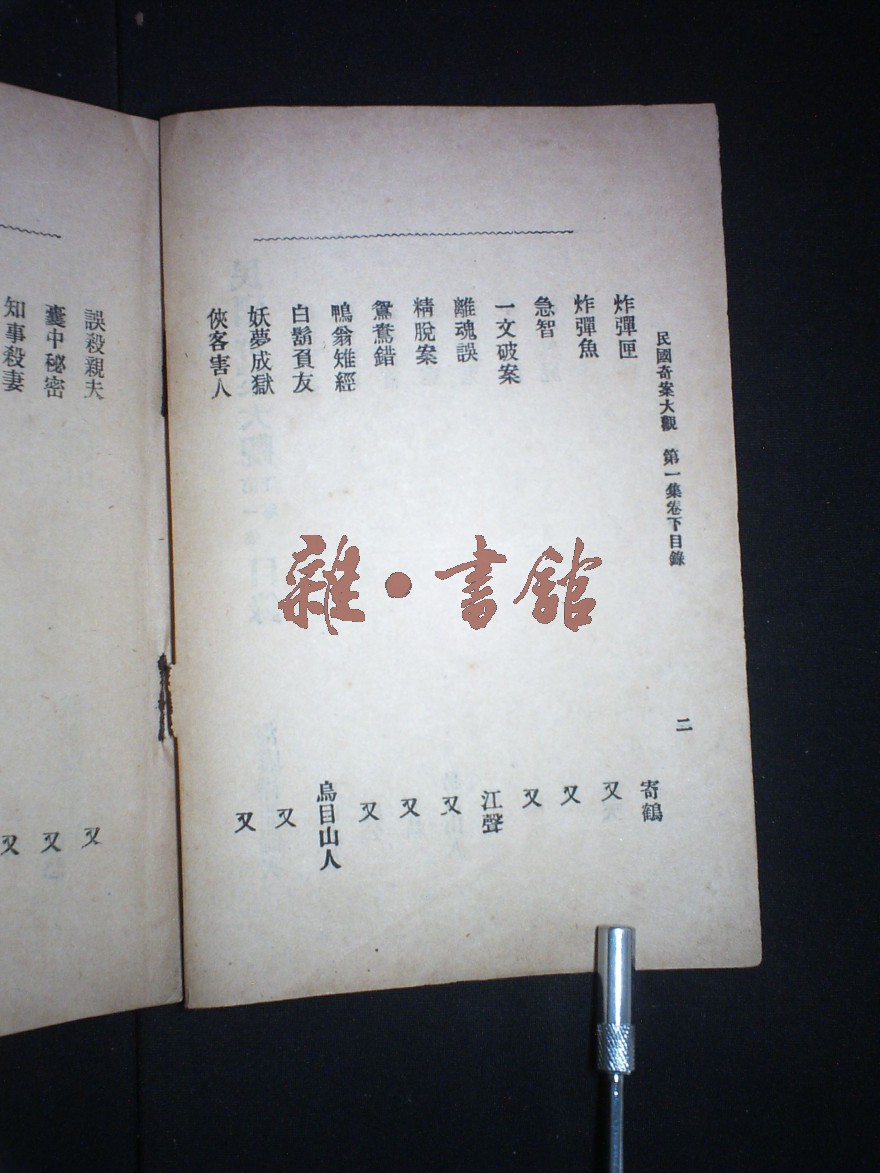 民國奇案大觀 第一集卷下目錄 二
炸彈匣 寄鶴
炸彈魚 又
急智 又
一文破案 又
離魂誤 江聲
精脫案 又
鴛鴦錯 又
鴨翁雉經 又
白鬍負友 烏目山人
妖夢成獄 又
俠客害人 又
誤殺親夫 又
囊中秘密 又
知事殺妻 又
雜•書館